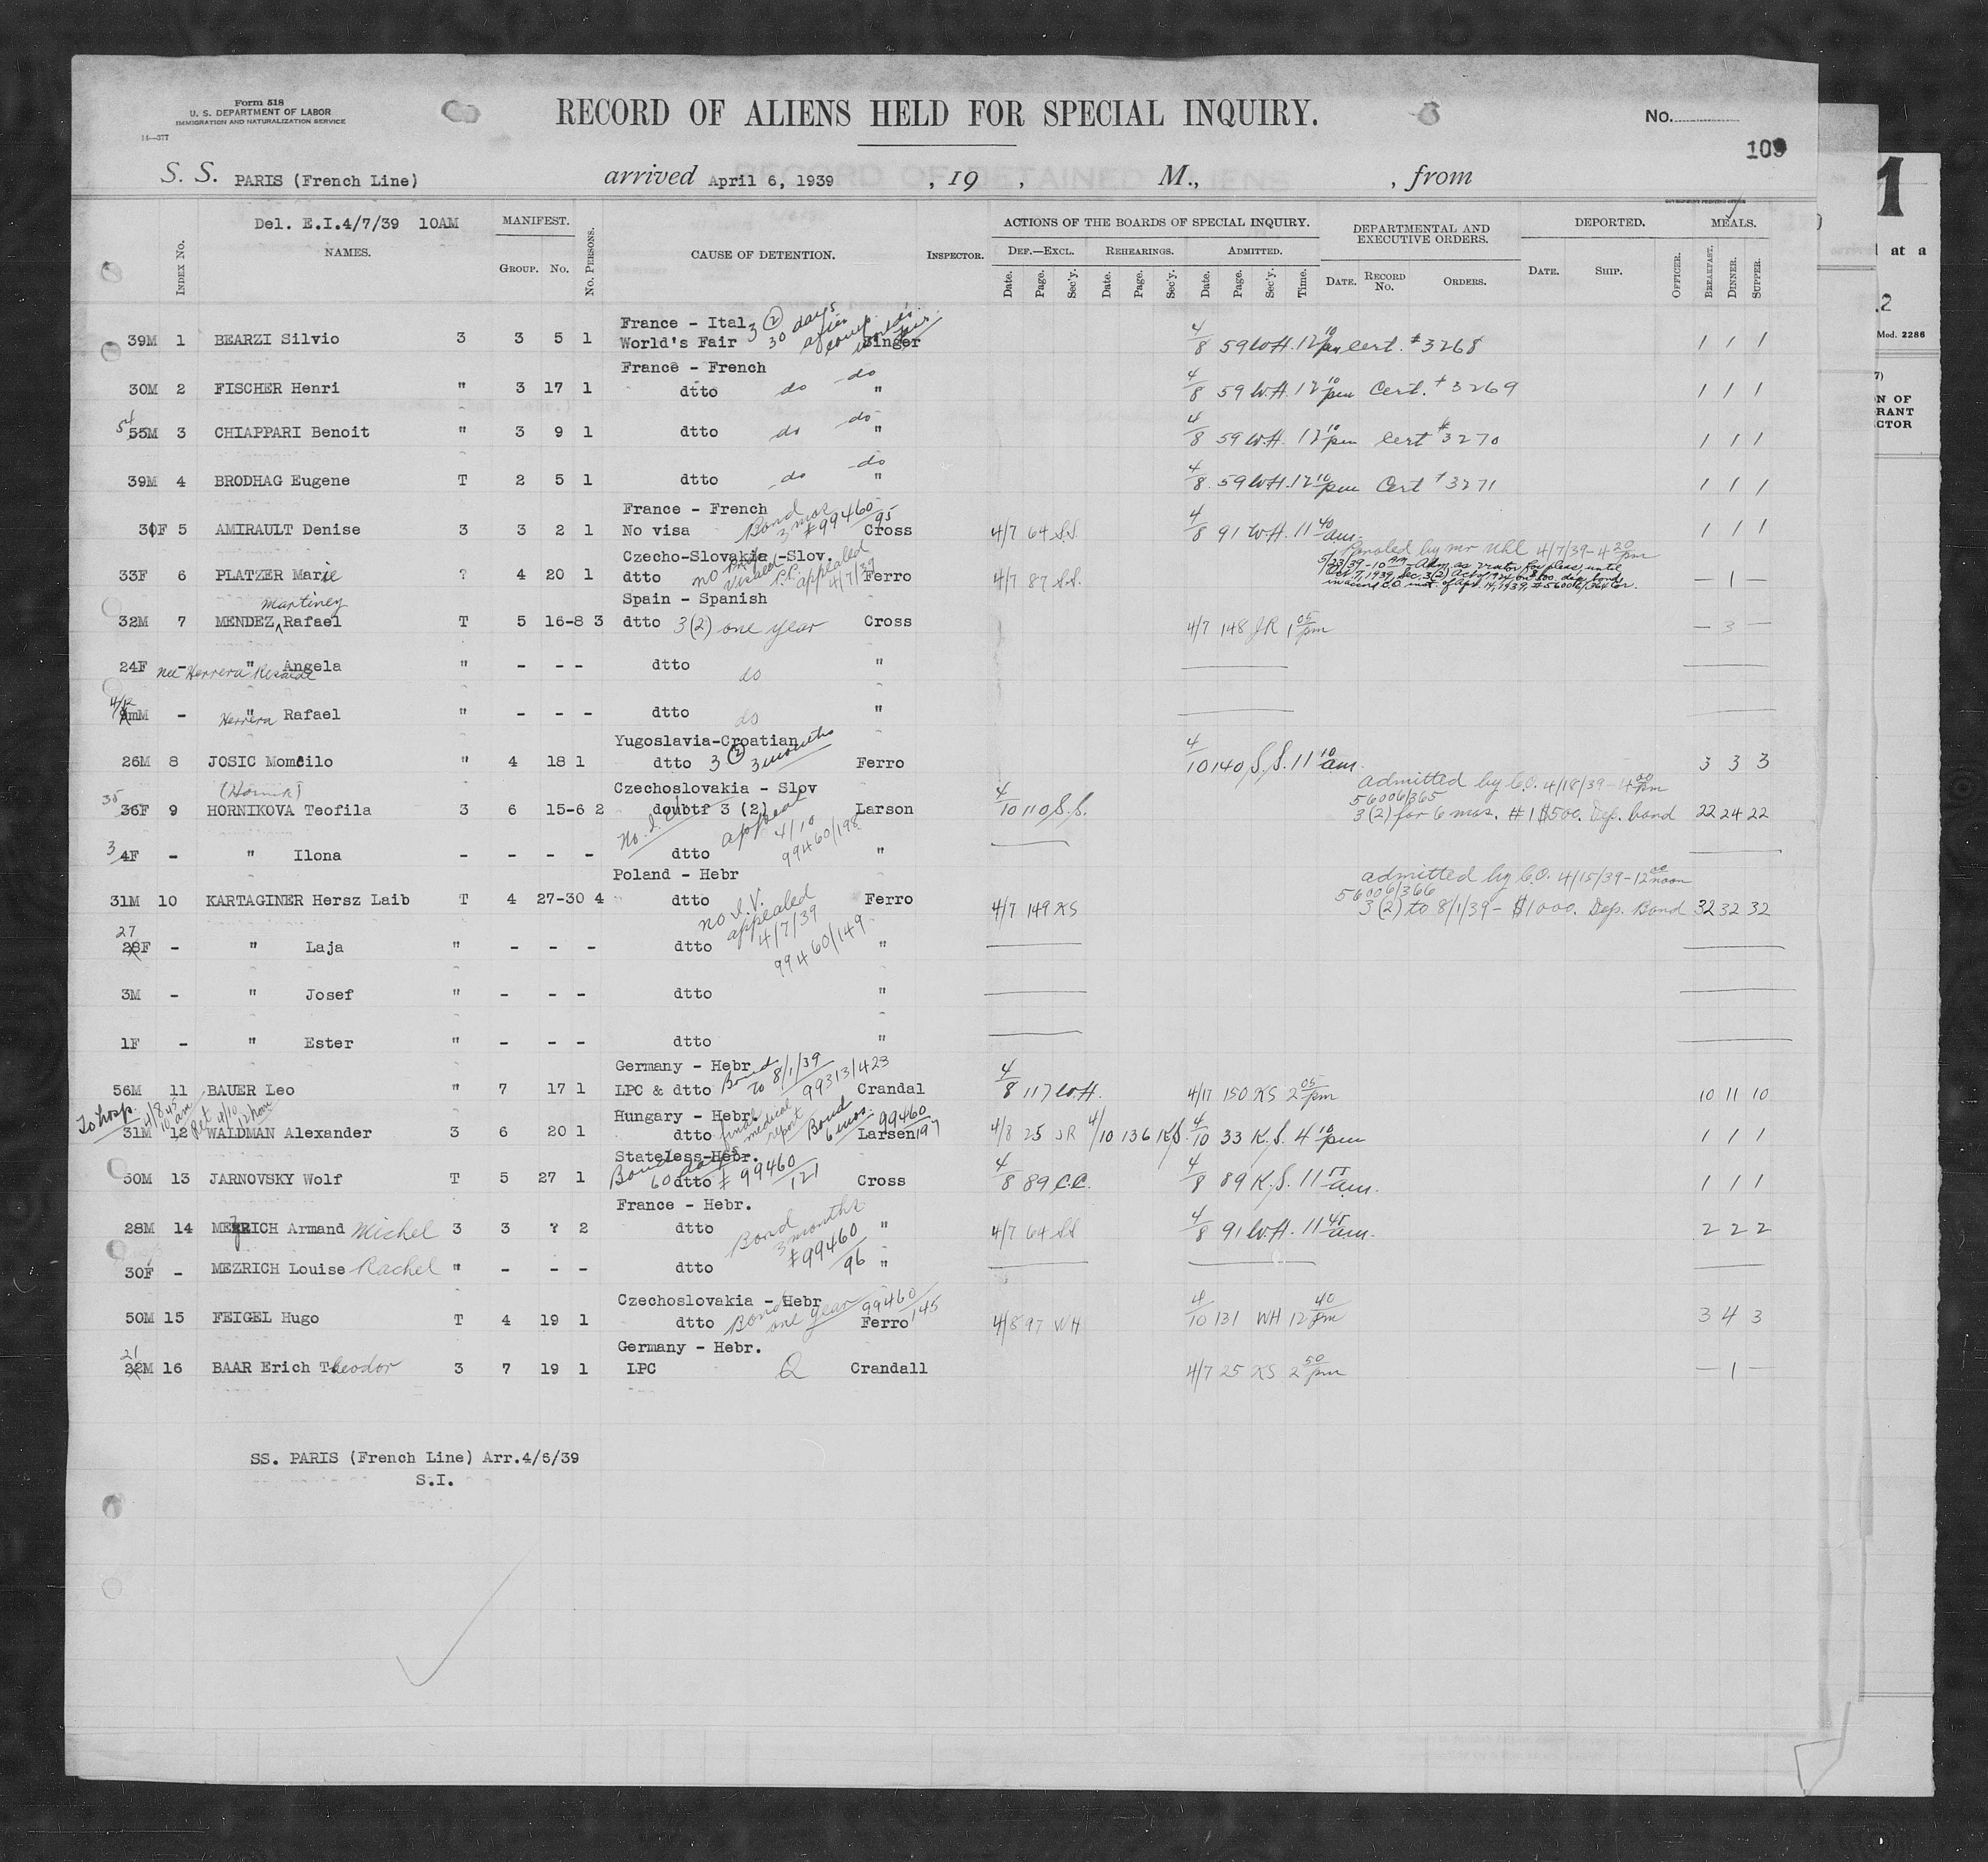 Form 518
U. S. DEPARTMENT OF LABOR
IMMIGRATION AND NATURALIZATION SERVICE
14—377
RECORD OF ALIENS HELD FOR SPECIAL INQUIRY.
No.
109
S. S. PARIS (French Line) arrived April 6, 1939 , 19 , M., , from
Del. E.I.4/7/39 10AM
INDEX NO. NAMES. MANIFEST. GROUP. NO. NO. PERSONS. CAUSE OF DETENTION. INSPECTOR. ACTIONS OF THE BOARDS OF SPECIAL INQUIRY. DEPARTMENTAL AND EXECUTIVE ORDERS. DEPORTED. MEALS.
DEF.—EXCL. REHEARINGS. ADMITTED.
Date. Page. Sec'y. Date. Page. Sec'y. Date. Page. Sec'y. Time. DATE. RECORD No. ORDERS. DATE. SHIP. OFFICER. BREAKFAST. DINNER. SUPPER.
France - Ital. 3 (2) 30 days after
39M 1 BEARZI Silvio 3 3 5 1 World's Fair Singer 4/8 59 W.H. 12 10 pm Cert. # 3268 1 1 1
France - French
30M 2 FISCHER Henri " 3 17 1 dtto do do " 4/8 59 W.H. 12 10 pm Cert. # 3269 1 1 1
54 55M 3 CHIAPPARI Benoit " 3 9 1 dtto do do " 4/8 59 W.H. 12 10 pm Cert # 3270 1 1 1
39M 4 BRODHAG Eugene T 2 5 1 dtto do do " 4/8 59 W.H. 12 10 pm Cert # 3271 1 1 1
France - French Bond 3 mos # 99460/95
30F 5 AMIRAULT Denise 3 3 2 1 No visa Cross 4/7 64 S.S. 4/8 91 W.H. 11 40 am. 1 1 1
Paroled by mr Uhl 4/7/39 - 4 20 pm
Czecho-Slovakia -Slov. appealed 4/7/39
33F 6 PLATZER Marie ? 4 20 1 dtto no visaed P.P. Ferro 4/7 87 S.S. — 1 —
Spain - Spanish
32M 7 MENDEZ Martinez Rafael T 5 16-8 3 dtto 3(2) one year Cross 4/7 148 JR 1 05 pm — 3 —
24F - " Angela " - - - dtto do "
nee Herrera
4/12 mM - " Herrera Rafael " - - - dtto do "
Yugoslavia-Croatian
26M 8 JOSIC Momcilo " 4 18 1 dtto 3 (2) 3 months Ferro 4/10 140 S.S. 11 10 am. 3 3 3
(Hornik) Czechoslovakia - Slov admitted by C.O. 4/18/39 - 4 00 pm
56006/365
35 36F 9 HORNIKOVA Teofila 3 6 15-6 2 doubtf 3 (2) Larson 4/10 110 S.S. 3(2) for 6 mos. # 1 $500. Dep. bond 22 24 22
appeal 4/10 99460/198
3 4F - " Ilona - - - - dtto "
Poland - Hebr admitted by C.O. 4/15/39 - 12 00 noon
56006/366
31M 10 KARTAGINER Hersz Laib T 4 27-30 4 dtto Ferro 4/7 149 KS 3(2) to 8/1/39 - $1000. Dep. Bond 32 32 32
no I.V. appealed 4/7/39 99460/149
27 28F - " Laja " - - - dtto "
3M - " Josef " - - - dtto "
1F - " Ester " - - - dtto "
Germany - Hebr Bond to 8/1/39 99313/423
56M 11 BAUER Leo " 7 17 1 LPC & dtto Crandal 4/8 117 W.H. 4/17 150 KS 2 05 pm 10 11 10
To hosp. 4/8 10 45 am Ret 4/10 12 noon
Hungary - Hebr. final medical report Bond 6 mos. 99460/197
31M 12 WALDMAN Alexander 3 6 20 1 dtto Larsen 4/8 25 JR 4/10 136 K.S. 4/10 33 K.S. 4 10 pm 1 1 1
Stateless-Hebr. Bond 60 days # 99460/121
50M 13 JARNOVSKY Wolf T 5 27 1 dtto Cross 4/8 89 C.C. 4/8 89 K.S. 11 55 am. 1 1 1
France - Hebr.
28M 14 MEZRICH Armand Michel 3 3 ? 2 dtto " 4/7 64 SS 4/8 91 W.H. 11 45 am. 2 2 2
Bond 3 months # 99460/96
30F - MEZRICH Louise Rachel " - - - dtto "
Czechoslovakia - Hebr Bond one year 99460/145
50M 15 FEIGEL Hugo T 4 19 1 dtto Ferro 4/8 97 WH 4/10 131 WH 12 40 pm 3 4 3
Germany - Hebr.
21 22M 16 BAAR Erich Theodor 3 7 19 1 LPC Q Crandall 4/7 25 KS 2 50 pm — 1 —
SS. PARIS (French Line) Arr.4/6/39
S.I.
1
at a
2
Mod. 2286
N OF
RANT
CTOR